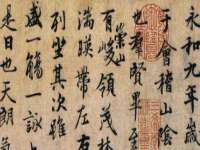 永和九年歲
于會稽山陰
也群賢畢至
崇山
有峻領茂林
湍暎帶左右
列坐其次雖
盛一觴一詠
是日也天朗